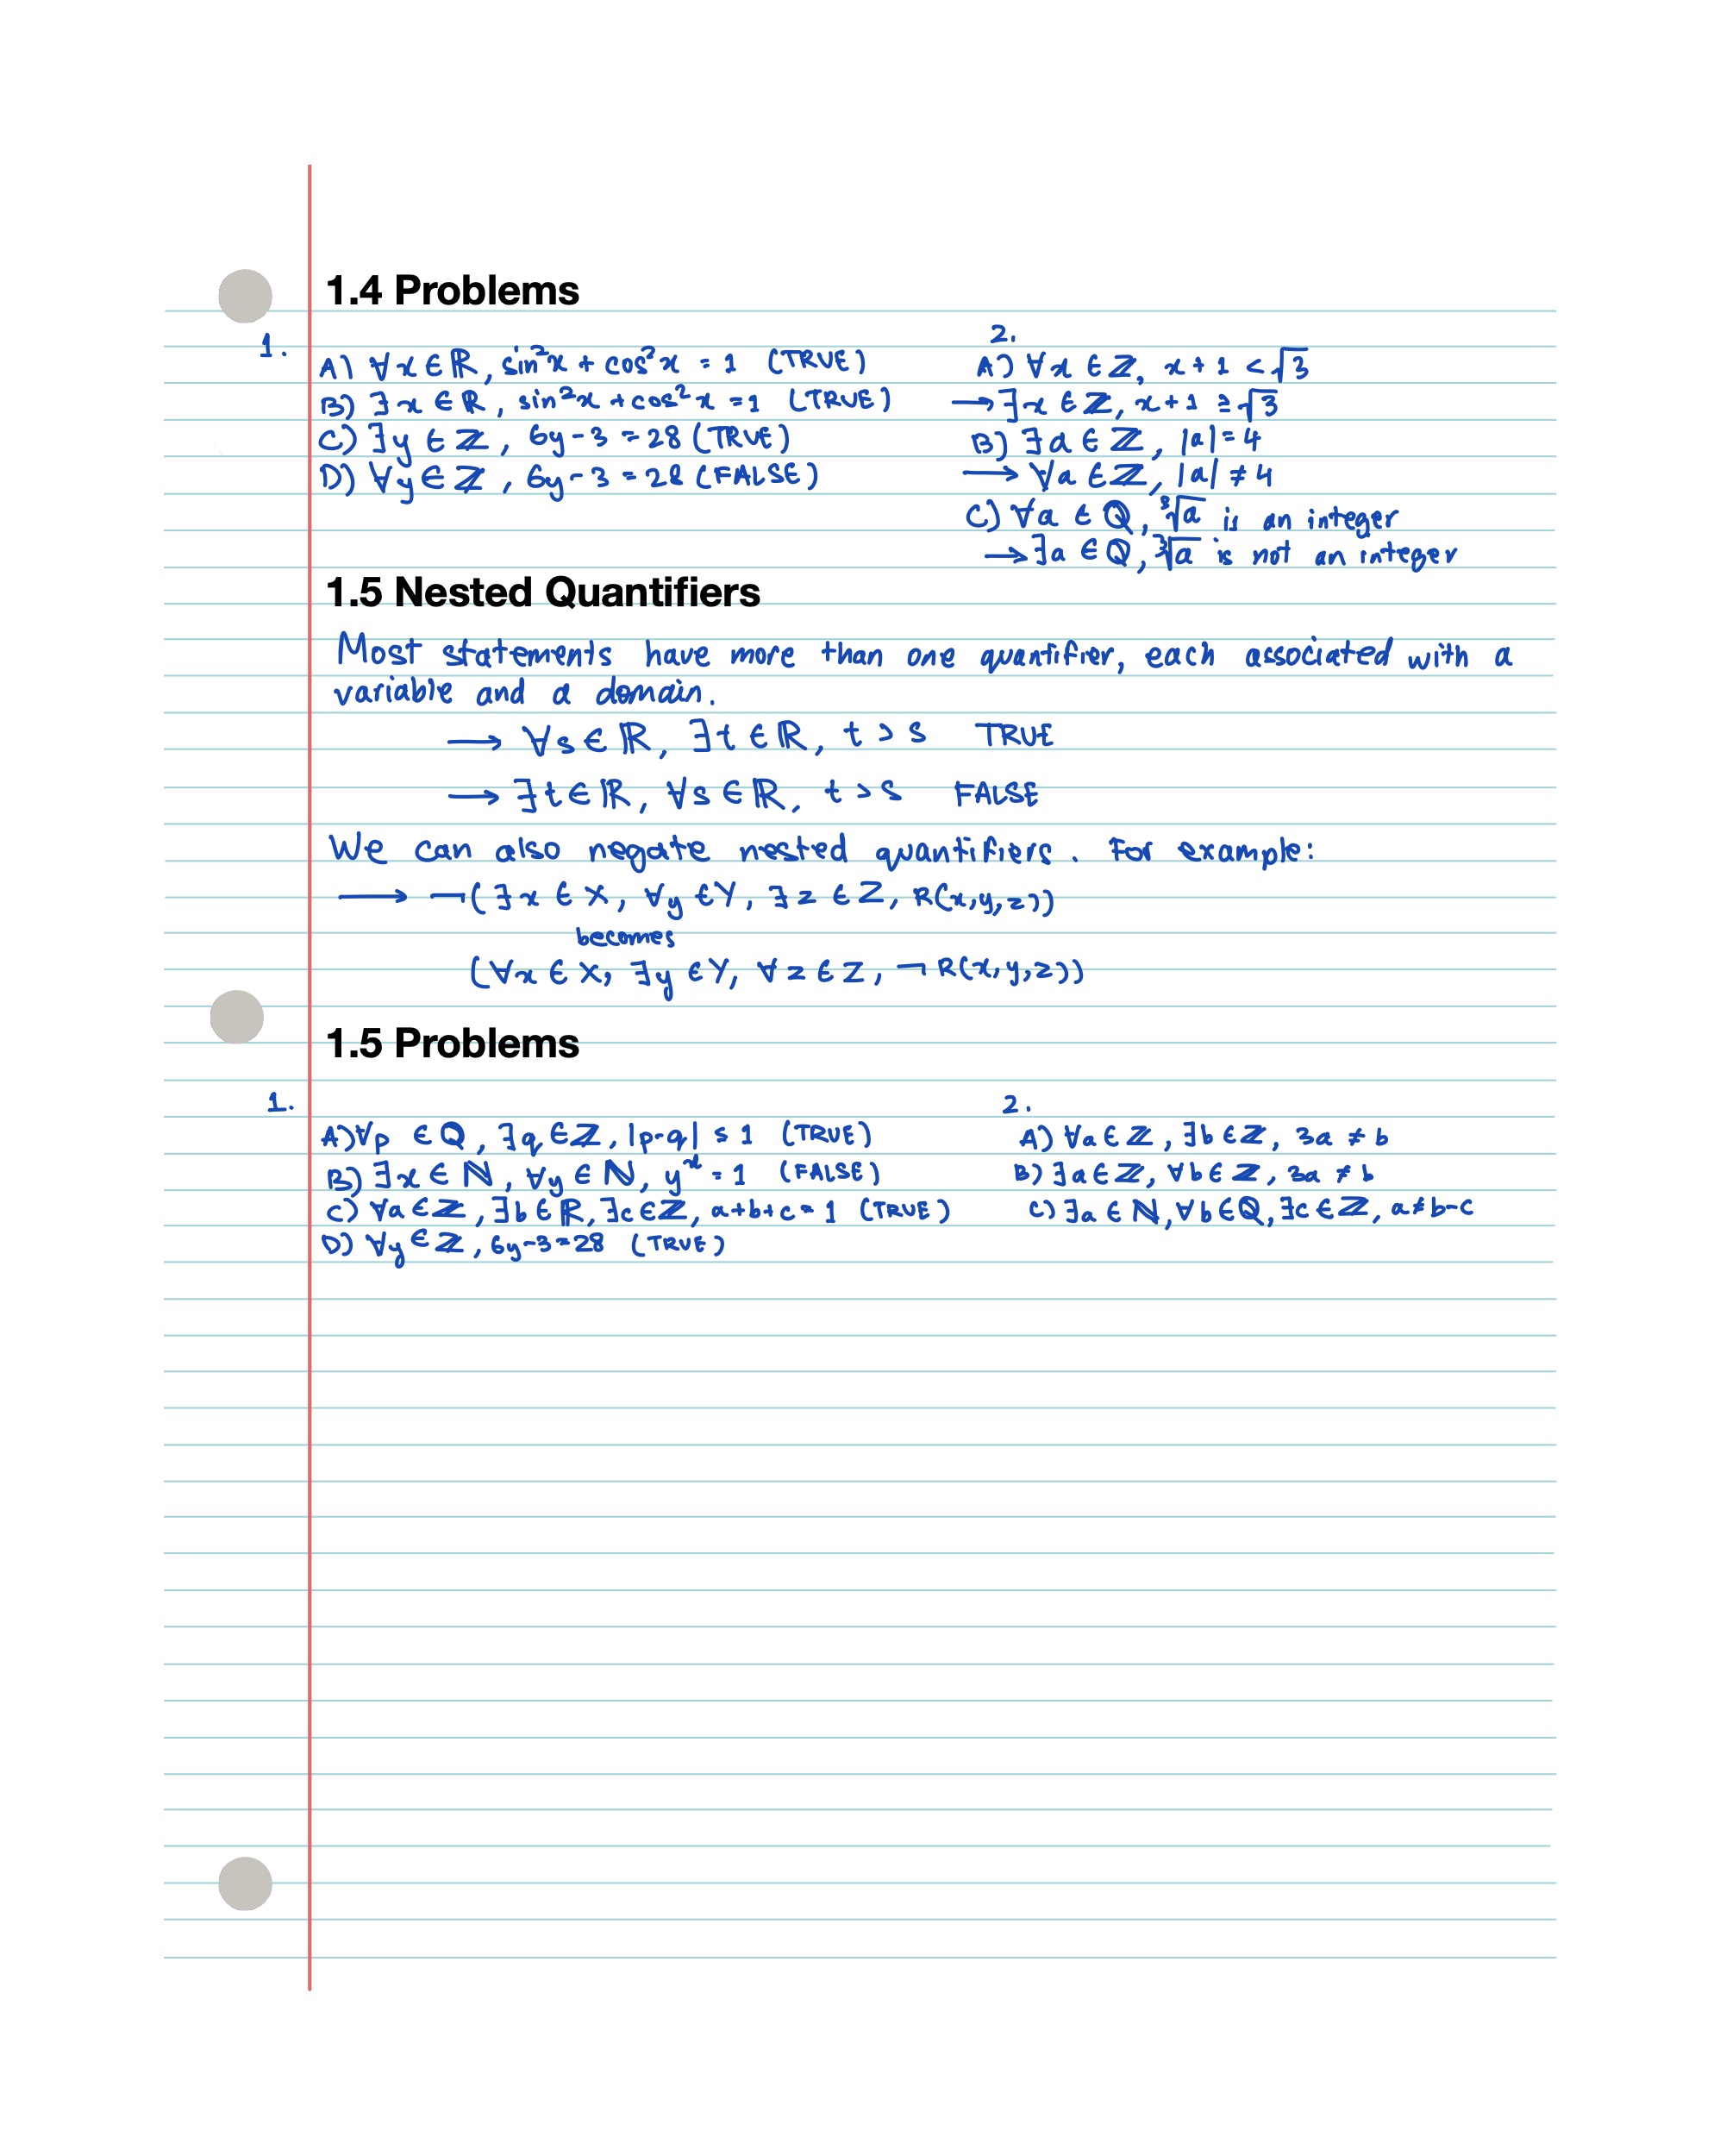 1.4 Problems
1.
A) ∀x ∈ ℝ, sin²x + cos²x = 1 (TRUE)
B) ∃x ∈ ℝ, sin²x + cos²x = 1 (TRUE)
C) ∃y ∈ ℤ, 6y-3 = 28 (TRUE)
D) ∀y ∈ ℤ, 6y-3 = 28 (FALSE)
2.
A) ∀x ∈ ℤ, x + 1 < √3
→ ∃x ∈ ℤ, x + 1 ≥ √3
B) ∃a ∈ ℤ, |a| = 4
→ ∀a ∈ ℤ, |a| ≠ 4
C) ∀a ∈ ℚ, ³√a is an integer
→ ∃a ∈ ℚ, ³√a is not an integer
1.5 Nested Quantifiers
Most statements have more than one quantifier, each associated with a
variable and a domain.
→ ∀s ∈ ℝ, ∃t ∈ ℝ, t > s TRUE
→ ∃t ∈ ℝ, ∀s ∈ ℝ, t > s FALSE
We can also negate nested quantifiers. For example:
→ ¬(∃x ∈ X, ∀y ∈ Y, ∃z ∈ Z, R(x,y,z))
becomes
(∀x ∈ X, ∃y ∈ Y, ∀z ∈ Z, ¬R(x,y,z))
1.5 Problems
1.
A) ∀p ∈ ℚ, ∃q ∈ ℤ, |p-q| ≤ 1 (TRUE)
B) ∃x ∈ ℕ, ∀y ∈ ℕ, yˣ = 1 (FALSE)
C) ∀a ∈ ℤ, ∃b ∈ ℝ, ∃c ∈ ℤ, a+b+c = 1 (TRUE)
D) ∀y ∈ ℤ, 6y-3 = 28 (TRUE)
2.
A) ∀a ∈ ℤ, ∃b ∈ ℤ, 3a ≠ b
B) ∃a ∈ ℤ, ∀b ∈ ℤ, 3a ≠ b
C) ∃a ∈ ℕ, ∀b ∈ ℚ, ∃c ∈ ℤ, a ≠ b-c